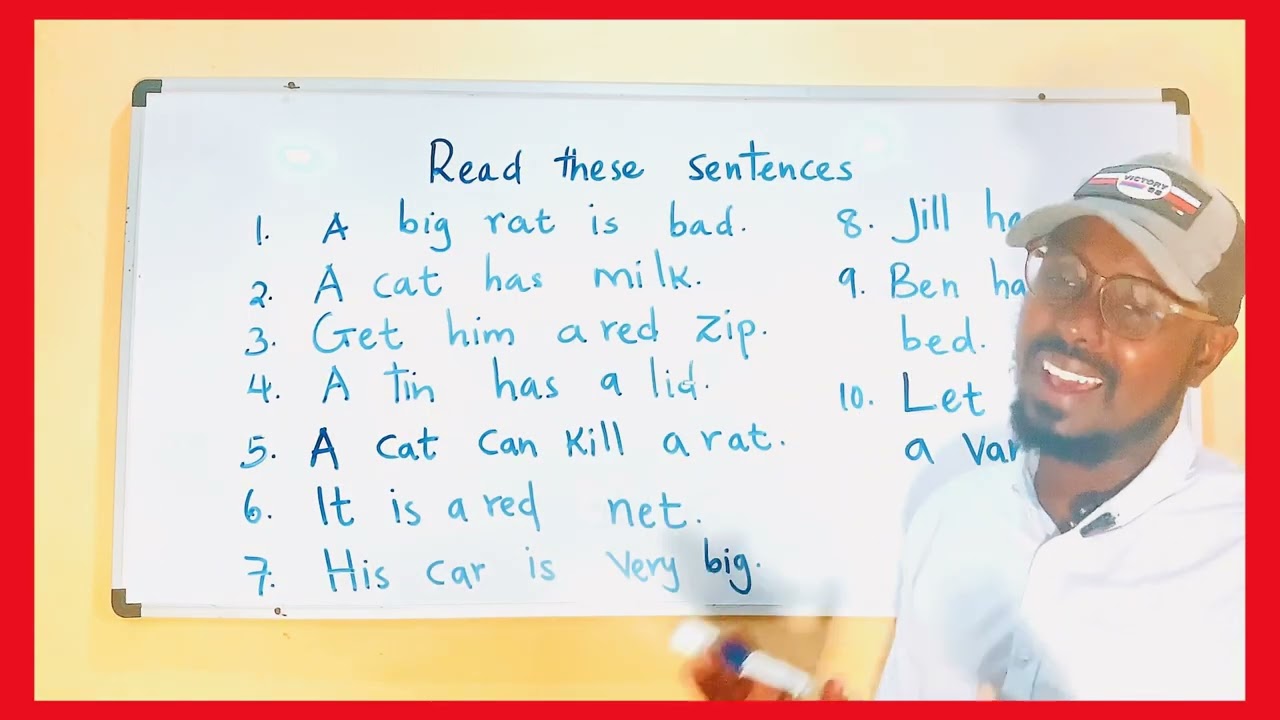 Read these sentences
1. A big rat is bad.
2. A cat has milk.
3. Get him a red zip.
4. A tin has a lid.
5. A cat can kill a rat.
6. It is a red net.
7. His car is very big.
8. Jill ha
9. Ben ha
bed.
10. Let
a var
VICTORY